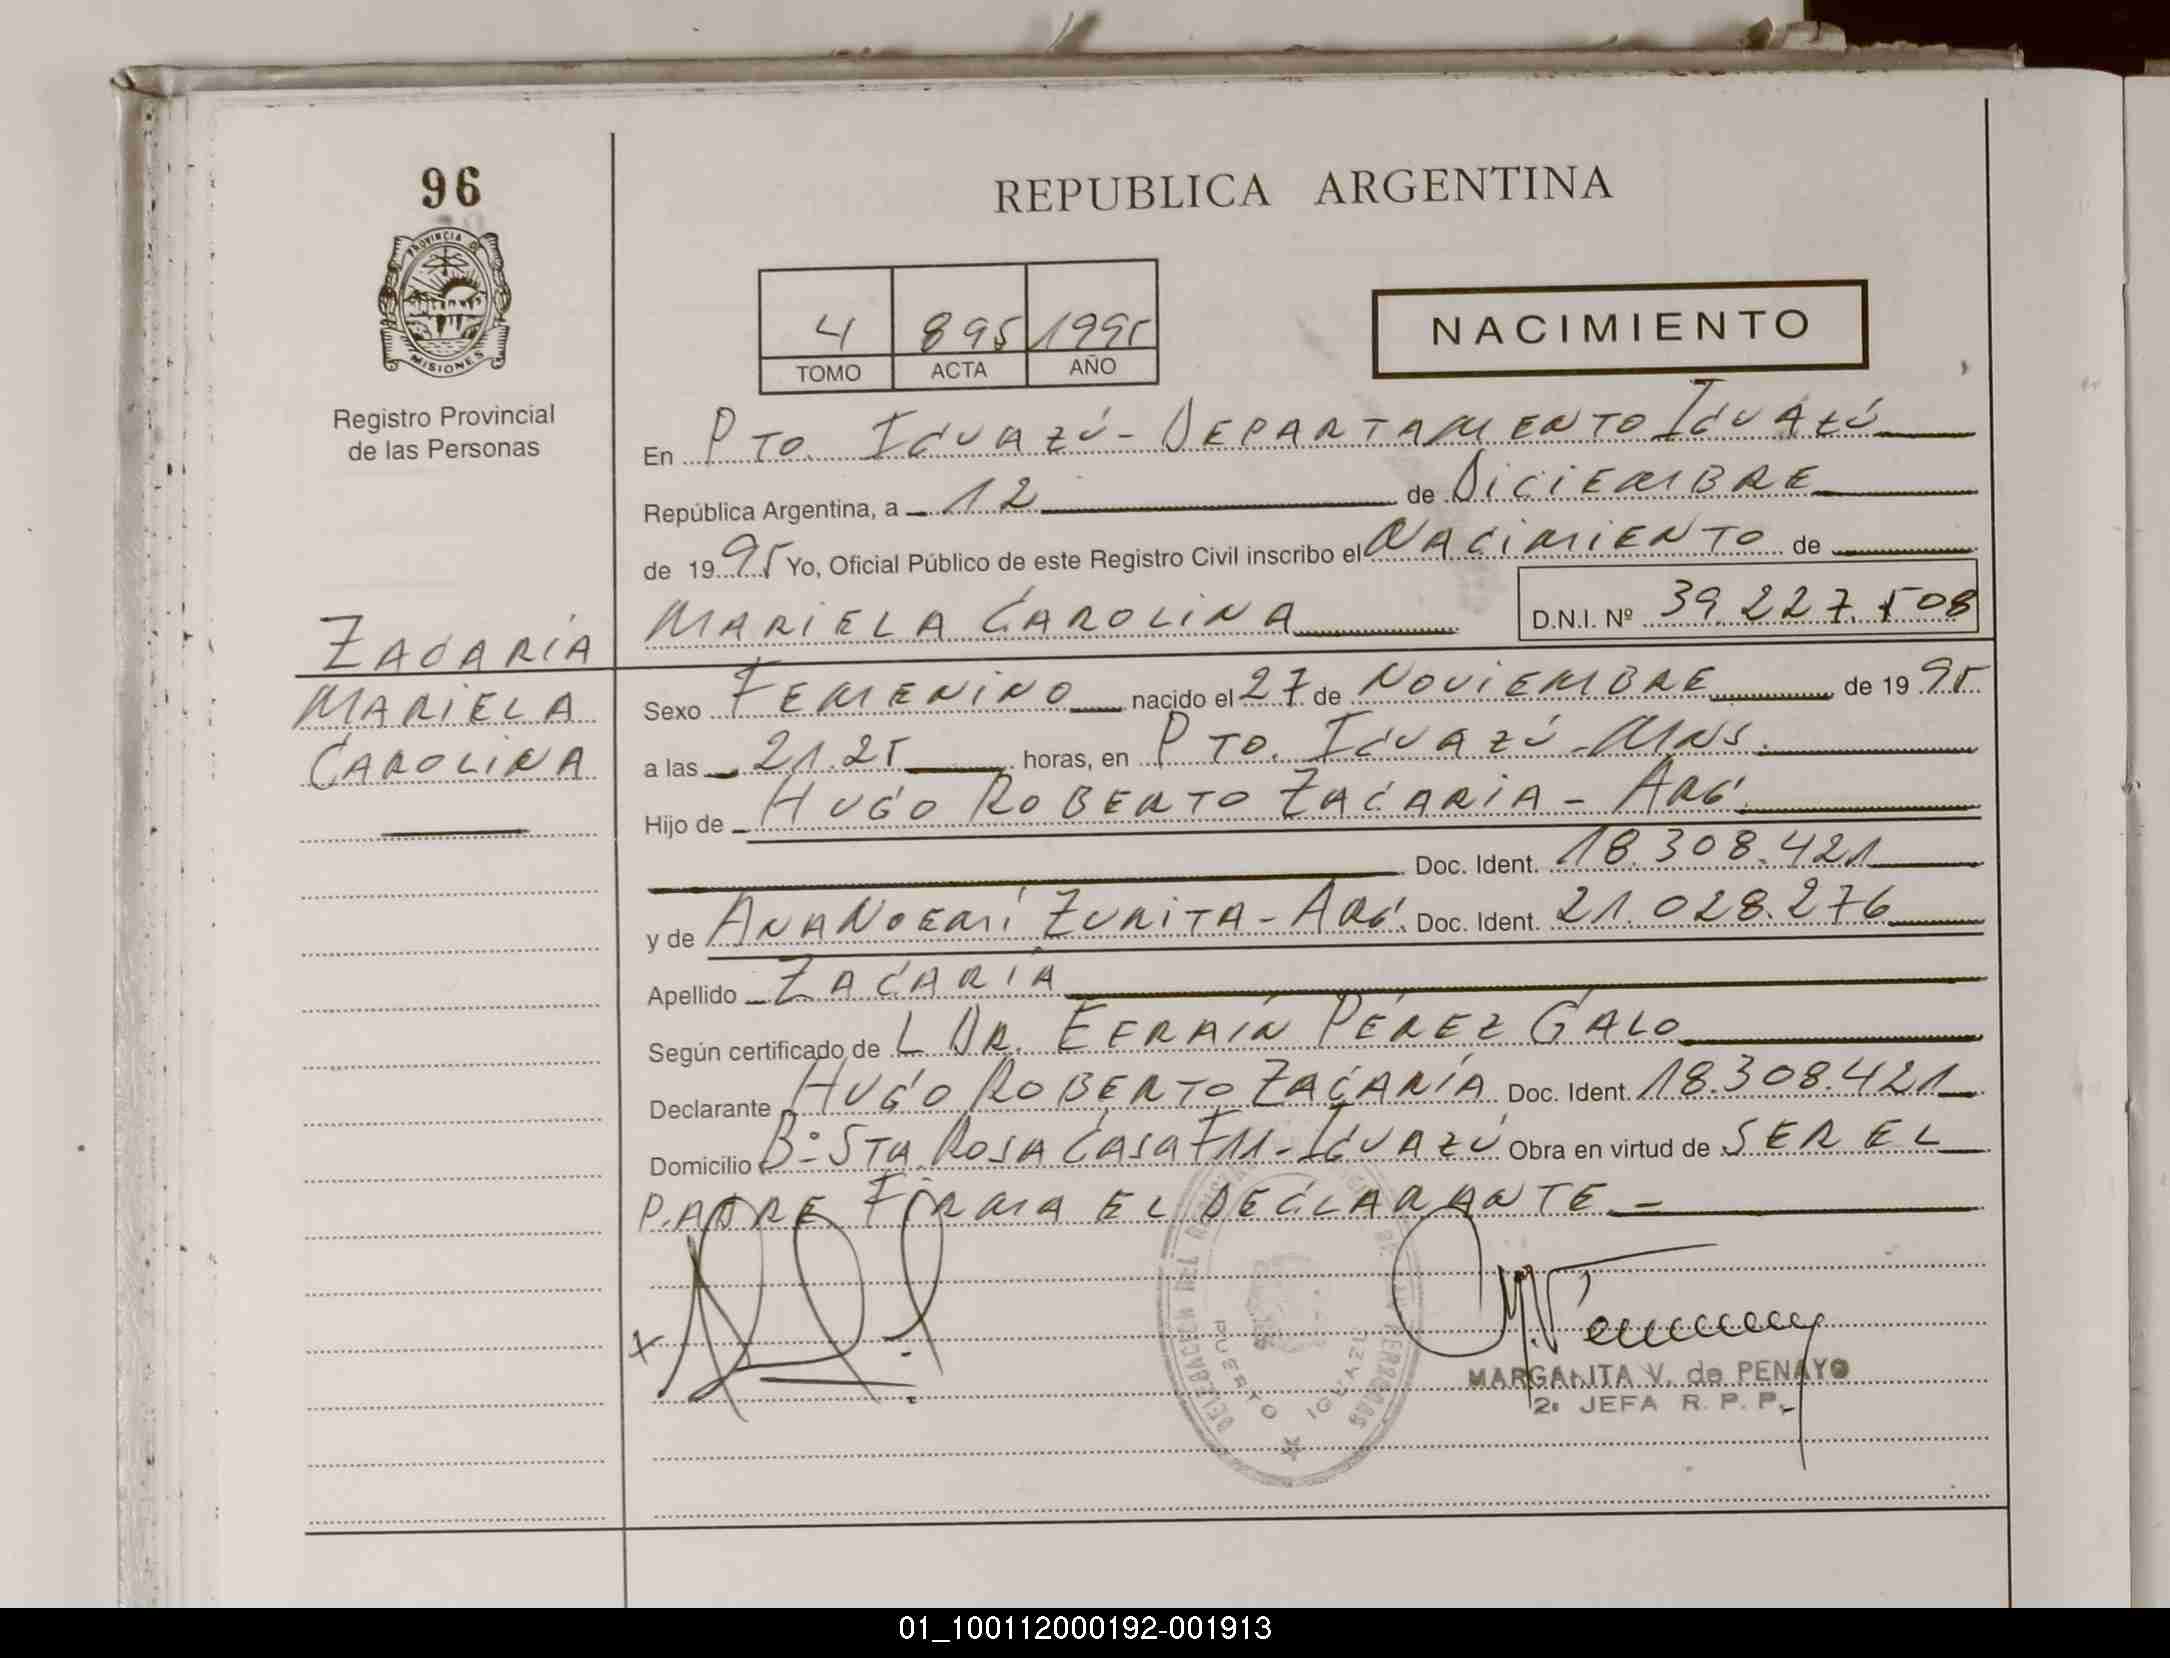 96
PROVINCIA DE
MISIONES
Registro Provincial
de las Personas
REPUBLICA ARGENTINA
4 895 1995
TOMO ACTA AÑO
NACIMIENTO
En PTO. IGUAZÚ - DEPARTAMENTO IGUAZÚ
República Argentina, a 12 de DICIEMBRE
de 1995 Yo, Oficial Público de este Registro Civil inscribo el NACIMIENTO de
MARIELA CAROLINA D.N.I. Nº 39.227.508
ZACARÍA
MARIELA
CAROLINA
Sexo FEMENINO nacido el 27 de NOVIEMBRE de 1995
a las 21.25 horas, en PTO. IGUAZÚ - MNS.
Hijo de HUGO ROBERTO ZACARIA - ARG.
Doc. Ident. 18.308.421
y de ANA NOEMÍ ZURITA - ARG. Doc. Ident. 21.028.276
Apellido ZACARÍA
Según certificado de L DR. EFRAÍN PÉREZ GALO
Declarante HUGO ROBERTO ZACARÍA Doc. Ident. 18.308.421
Domicilio B° STA. ROSA CASA F11 - IGUAZÚ Obra en virtud de SER EL
PADRE FIRMA EL DECLARANTE -
DELEGACION DEL
PUERTO IGUAZU
MARGARITA V. de PENAYO
2ª JEFA R. P. P.
01_100112000192-001913